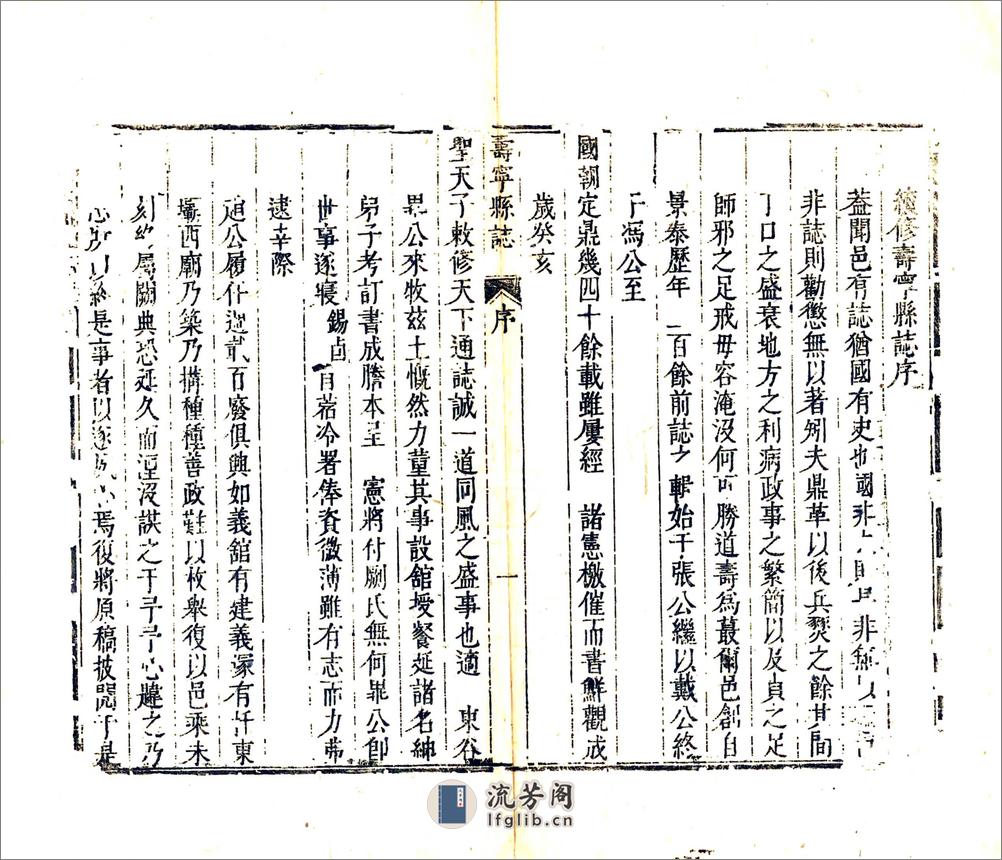 續修壽寧縣誌序
蓋聞邑有誌猶國有史也國非
非誌則勸懲無以著矧夫鼎革以後兵燹之餘其間
丁口之盛衰地方之利病政事之繁簡以及貞之足
師邪之足戒毋容淹沒何可勝道壽為蕞爾邑創自
景泰歷年 百餘前誌之輯始于張公繼以戴公終
于馮公至
國朝定鼎幾四十餘載雖屢經 諸憲檄催而書鮮觀成
歲癸亥
聖天子敕修天下通誌誠一道同風之盛事也適 東谷
公來牧茲土慨然力董其事設舘授餐延諸名紳
弟子考訂書成謄本呈 憲將付劂氏無何 公卸
世事遂寢 錫 冷署俸資微薄雖有志而力弗
逮幸際
公履任 百廢俱興如義舘有建義 有 東
西廟乃築乃搆種種善政難以枚舉復以邑乘未
刻 屬闕典恐延久而湮沒謀之于予予心韙之乃
是事者以遂 焉復將原稿披閱于是
壽寧縣誌
序
一
流芳阁
lfglib.cn